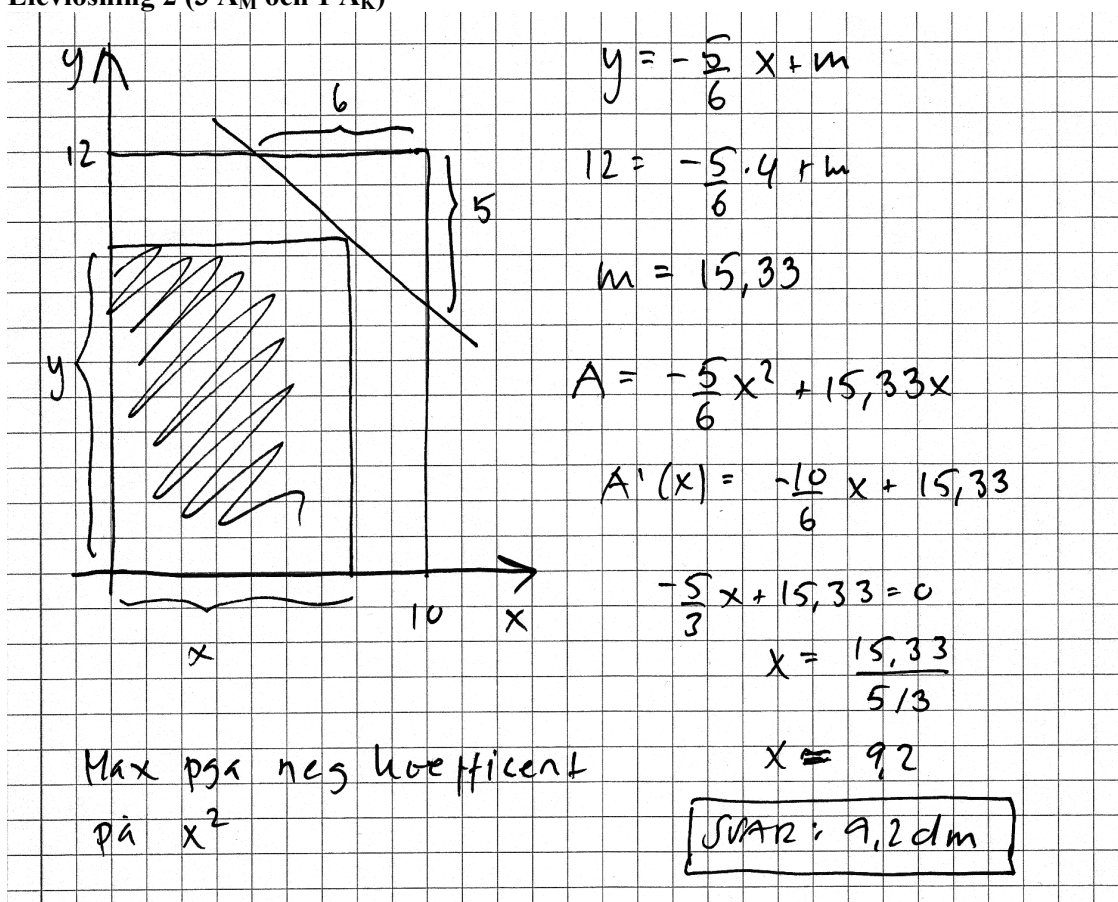 Elevlösning 2 (3 AM och 1 AK)
y
12
6
5
y
x
10
x
y = -5/6 x + m
12 = -5/6 · 4 + m
m = 15,33
A = -5/6 x² + 15,33x
A'(x) = -10/6 x + 15,33
-5/3 x + 15,33 = 0
x = 15,33 / 5/3
x = 9,2
SVAR: 9,2 dm
Max pga neg koefficent
på x²